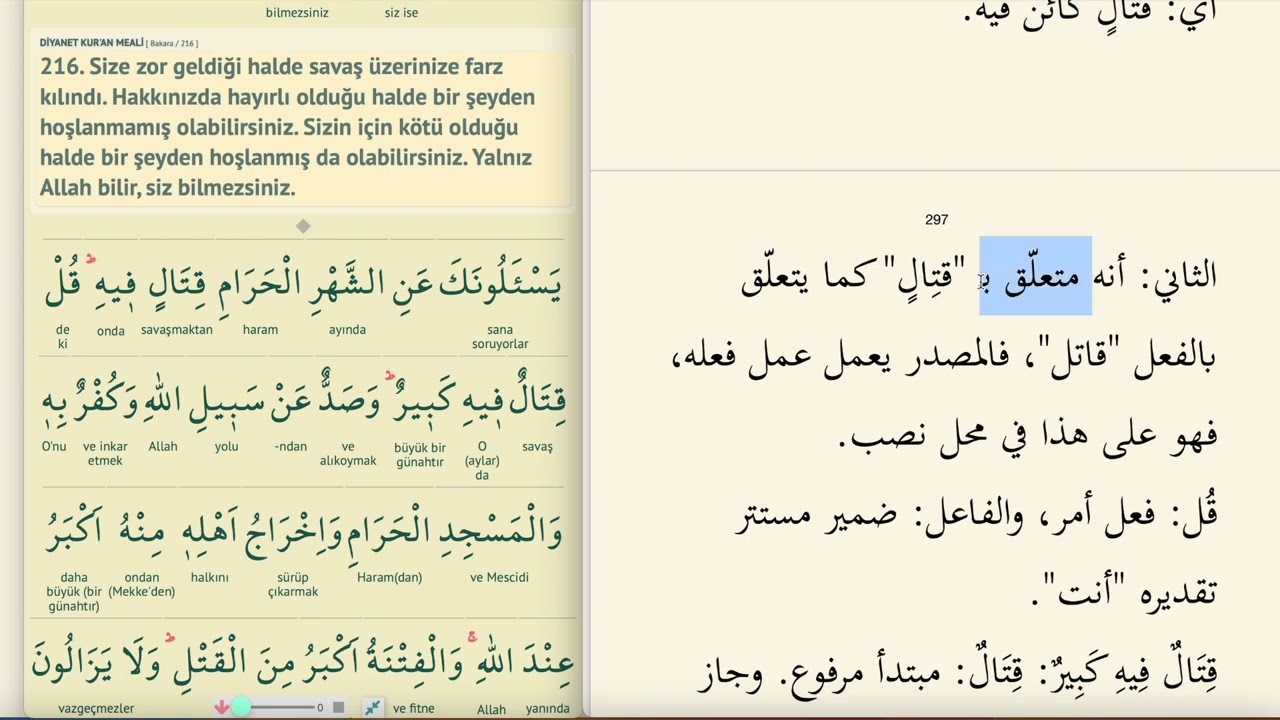 bilmezsiniz siz ise
DİYANET KUR'AN MEALİ [ Bakara / 216 ]
216. Size zor geldiği halde savaş üzerinize farz
kılındı. Hakkınızda hayırlı olduğu halde bir şeyden
hoşlanmamış olabilirsiniz. Sizin için kötü olduğu
halde bir şeyden hoşlanmış da olabilirsiniz. Yalnız
Allah bilir, siz bilmezsiniz.
يَسْـَٔلُونَكَ عَنِ الشَّهْرِ الْحَرَامِ قِتَالٍ فٖيهِؕ قُلْ
de ki onda savaşmaktan haram ayında sana soruyorlar
قِتَالٌ فٖيهِ كَبٖيرٌؕ وَصَدٌّ عَنْ سَبٖيلِ اللّٰهِ وَكُفْرٌ بِهٖ
O'nu ve inkar etmek Allah yolu -ndan ve alıkoymak büyük bir günahtır O (aylar) da savaş
وَالْمَسْجِدِ الْحَرَامِ وَاِخْرَاجُ اَهْلِهٖ مِنْهُ اَكْبَرُ
daha büyük (bir günahtır) ondan (Mekke'den) halkını sürüp çıkarmak Haram(dan) ve Mescidi
عِنْدَ اللّٰهِۚ وَالْفِتْنَةُ اَكْبَرُ مِنَ الْقَتْلِؕ وَلَا يَزَالُونَ
vazgeçmezler 0 ve fitne Allah yanında
أي: قتالٍ كائن فيه.
297
الثاني: أنه متعلّق بـ "قتِالٍ" كما يتعلّق
بالفعل "قاتل"، فالمصدر يعمل عمل فعله،
فهو على هذا في محل نصب.
قُل: فعل أمر، والفاعل: ضمير مستتر
تقديره "أنت".
قِتَالٌ فِيهِ كَبِيرٌ: قِتَالٌ: مبتدأ مرفوع. وجاز